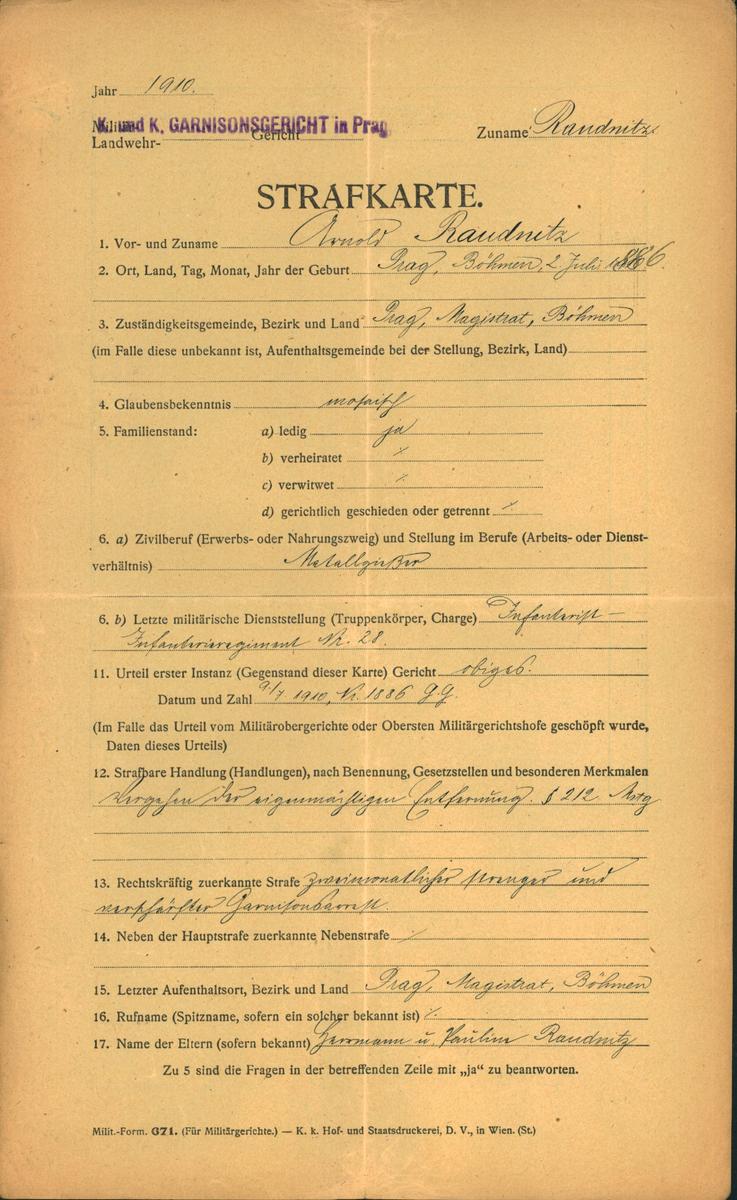 Jahr 1910.
K. und K. GARNISONSGERICHT in Prag
Militär-
Landwehr- Gericht
Zuname Raudnitz
STRAFKARTE.
1. Vor- und Zuname Arnold Raudnitz
2. Ort, Land, Tag, Monat, Jahr der Geburt Prag, Böhmen, 2 Juli 1886.
3. Zuständigkeitsgemeinde, Bezirk und Land Prag, Magistrat, Böhmen
(im Falle diese unbekannt ist, Aufenthaltsgemeinde bei der Stellung, Bezirk, Land)
4. Glaubensbekenntnis mosaisch
5. Familienstand: a) ledig ja
b) verheiratet ⁒
c) verwitwet ⁒
d) gerichtlich geschieden oder getrennt ⁒
6. a) Zivilberuf (Erwerbs- oder Nahrungszweig) und Stellung im Berufe (Arbeits- oder Dienst-
verhältnis) Metallgießer
6. b) Letzte militärische Dienststellung (Truppenkörper, Charge) Infanterist –
Infanterieregiment Nr. 28.
11. Urteil erster Instanz (Gegenstand dieser Karte) Gericht obiges.
Datum und Zahl 9/7 1910, Nr. 1886 G.G.
(Im Falle das Urteil vom Militärobergerichte oder Obersten Militärgerichtshofe geschöpft wurde,
Daten dieses Urteils)
12. Strafbare Handlung (Handlungen), nach Benennung, Gesetzstellen und besonderen Merkmalen
Vergehen der eigenmächtigen Entfernung. § 212 Mstg
13. Rechtskräftig zuerkannte Strafe zweimonatlicher strenger und
verschärfter Garnisonsarrest.
14. Neben der Hauptstrafe zuerkannte Nebenstrafe ⁒
15. Letzter Aufenthaltsort, Bezirk und Land Prag, Magistrat, Böhmen
16. Rufname (Spitzname, sofern ein solcher bekannt ist) ⁒
17. Name der Eltern (sofern bekannt) Herrmann u. Pauline Raudnitz
Zu 5 sind die Fragen in der betreffenden Zeile mit „ja“ zu beantworten.
Milit.-Form. G71. (Für Militärgerichte.) — K. k. Hof- und Staatsdruckerei, D. V., in Wien. (St.)